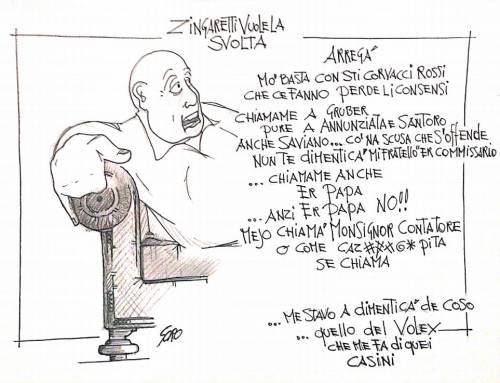 ZINGARETTI VUOLE LA
SVOLTA
ARREGÀ
MO' BASTA CON STI CORVACCI ROSSI
CHE CE FANNO PERDE LI CONSENSI
CHIAMAME A GRUBER
PURE A ANNUNZIATA E SANTORO
ANCHE SAVIANO... CO' NA SCUSA CHE S'OFFENDE
NUN TE DIMENTICÀ "MI FRATELLO" ER COMMISSARIO
... CHIAMAME ANCHE
ER PAPA
... ANZI ER PAPA NO!!
MEJO CHIAMÀ MONSIGNOR CONTATORE
O COME CAZ##@* PITA
SE CHIAMA
... ME STAVO A DIMENTICÀ DE COSO
... QUELLO DEL VOLEX
CHE ME FA DI QUEI
CASINI